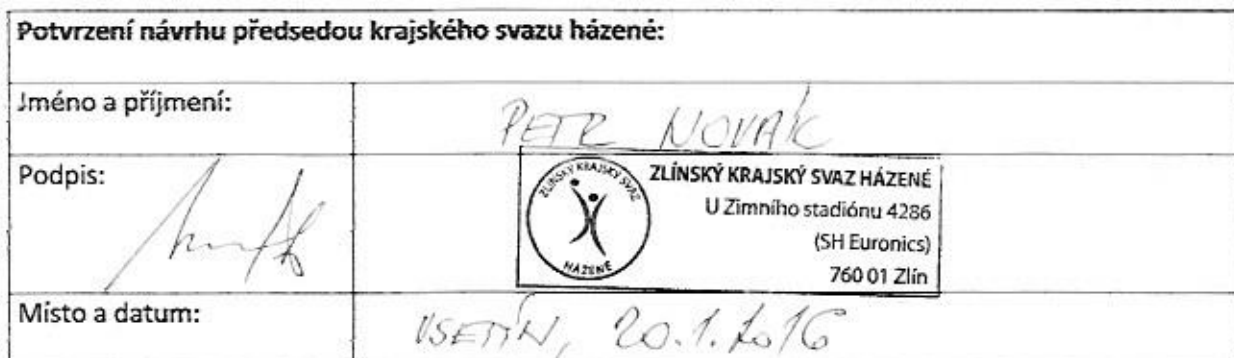 Potvrzení návrhu předsedou krajského svazu házené:
Jméno a příjmení:
PETR NOVÁK
Podpis:
ZLÍNSKÝ KRAJSKÝ SVAZ
HÁZENÉ
ZLÍNSKÝ KRAJSKÝ SVAZ HÁZENÉ
U Zimního stadiónu 4286
(SH Euronics)
760 01 Zlín
Místo a datum:
VSETÍN, 20.1.2016